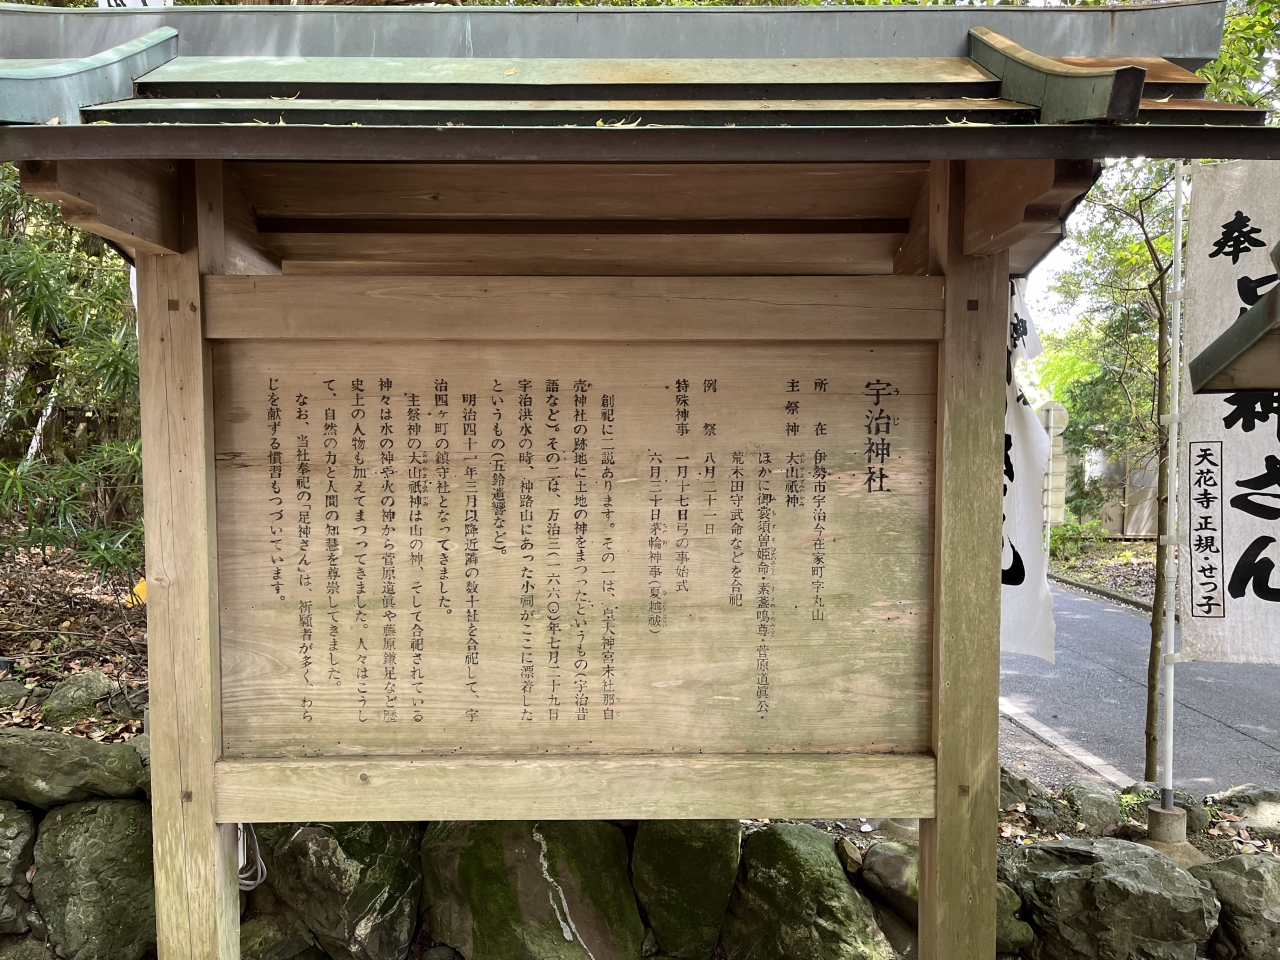 宇治神社
所在 伊勢市宇治今在家町字丸山
主祭神 大山祇神
ほかに御裳須曽姫命・素盞嗚尊・菅原道眞公・
荒木田守武命などを合祀
例祭 八月二十一日
特殊神事 一月十七日弓の事始式
六月三十日茅輪神事(夏越祓)
創祀に二説あります。その一は、皇大神宮末社那自
売神社の跡地に土地の神をまつったというもの(宇治昔
語など)。その二は、万治三(一六六〇)年七月二十九日
宇治洪水の時、神路山にあった小祠がここに漂着した
というもの(五鈴遺響など)。
明治四十一年三月以降近隣の数十社を合祀して、宇
治四ヶ町の鎮守社となってきました。
主祭神の大山祇神は山の神、そして合祀されている
神々は水の神や火の神から菅原道眞や藤原鎌足など歴
史上の人物も加えてまつってきました。人々はこうし
て、自然の力と人間の知慧を尊崇してきました。
なお、当社奉祀の「足神さん」は、祈願者が多く、わら
じを献ずる慣習もつづいています。
奉
神さん
天花寺 正規・せつ子